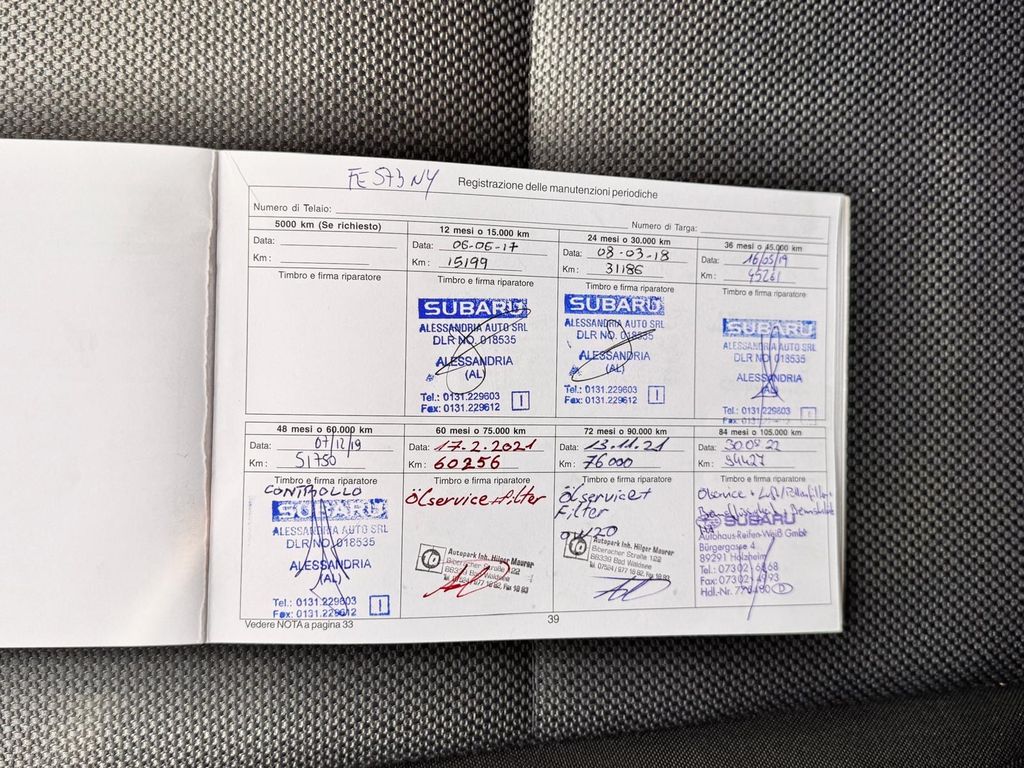 FE573NY
Registrazione delle manutenzioni periodiche
Numero di Telaio:
Numero di Targa:
5000 km (Se richiesto)
Data:
Km :
Timbro e firma riparatore
12 mesi o 15.000 km
Data: 06-06-17
Km : 15199
Timbro e firma riparatore
SUBARU
ALESSANDRIA AUTO SRL
DLR NO. 018535
ALESSANDRIA
(AL)
Tel.: 0131.229603
Fax: 0131.229612
I
24 mesi o 30.000 km
Data: 08-03-18
Km : 31186
Timbro e firma riparatore
SUBARU
ALESSANDRIA AUTO SRL
DLR NO. 018535
ALESSANDRIA
(AL)
Tel.: 0131.229603
Fax: 0131.229612
I
36 mesi o 45.000 km
Data: 16/05/19
Km : 45261
Timbro e firma riparatore
SUBARU
ALESSANDRIA AUTO SRL
DLR NO. 018535
ALESSANDRIA
(AL)
Tel.: 0131.229603
Fax: 0131.229612
48 mesi o 60.000 km
Data: 07/12/19
Km : 51750
Timbro e firma riparatore
CONTROLLO
SUBARU
ALESSANDRIA AUTO SRL
DLR NO. 018535
ALESSANDRIA
(AL)
Tel.: 0131.229603
Fax: 0131.229612
I
60 mesi o 75.000 km
Data: 17.2.2021
Km : 60256
Timbro e firma riparatore
Ölservice+filter
Autopark Inh. Hilger Maurer
Biberacher Straße 122
88339 Bad Waldsee
72 mesi o 90.000 km
Data: 13.11.21
Km : 76000
Timbro e firma riparatore
Ölservice+
Filter
0W20
Autopark Inh. Hilger Maurer
Biberacher Straße 122
88339 Bad Waldsee
84 mesi o 105.000 km
Data: 22
Km : 94427
Timbro e firma riparatore
Ölservice + Luft/Pollenfilter+
SUBARU
Autohaus-Reifen-Weiß GmbH
Bürgergasse 4
89291 Holzheim
Tel.: 07302
Fax: 07302
Hdl.-Nr.
D
Vedere NOTA a pagina 33
39